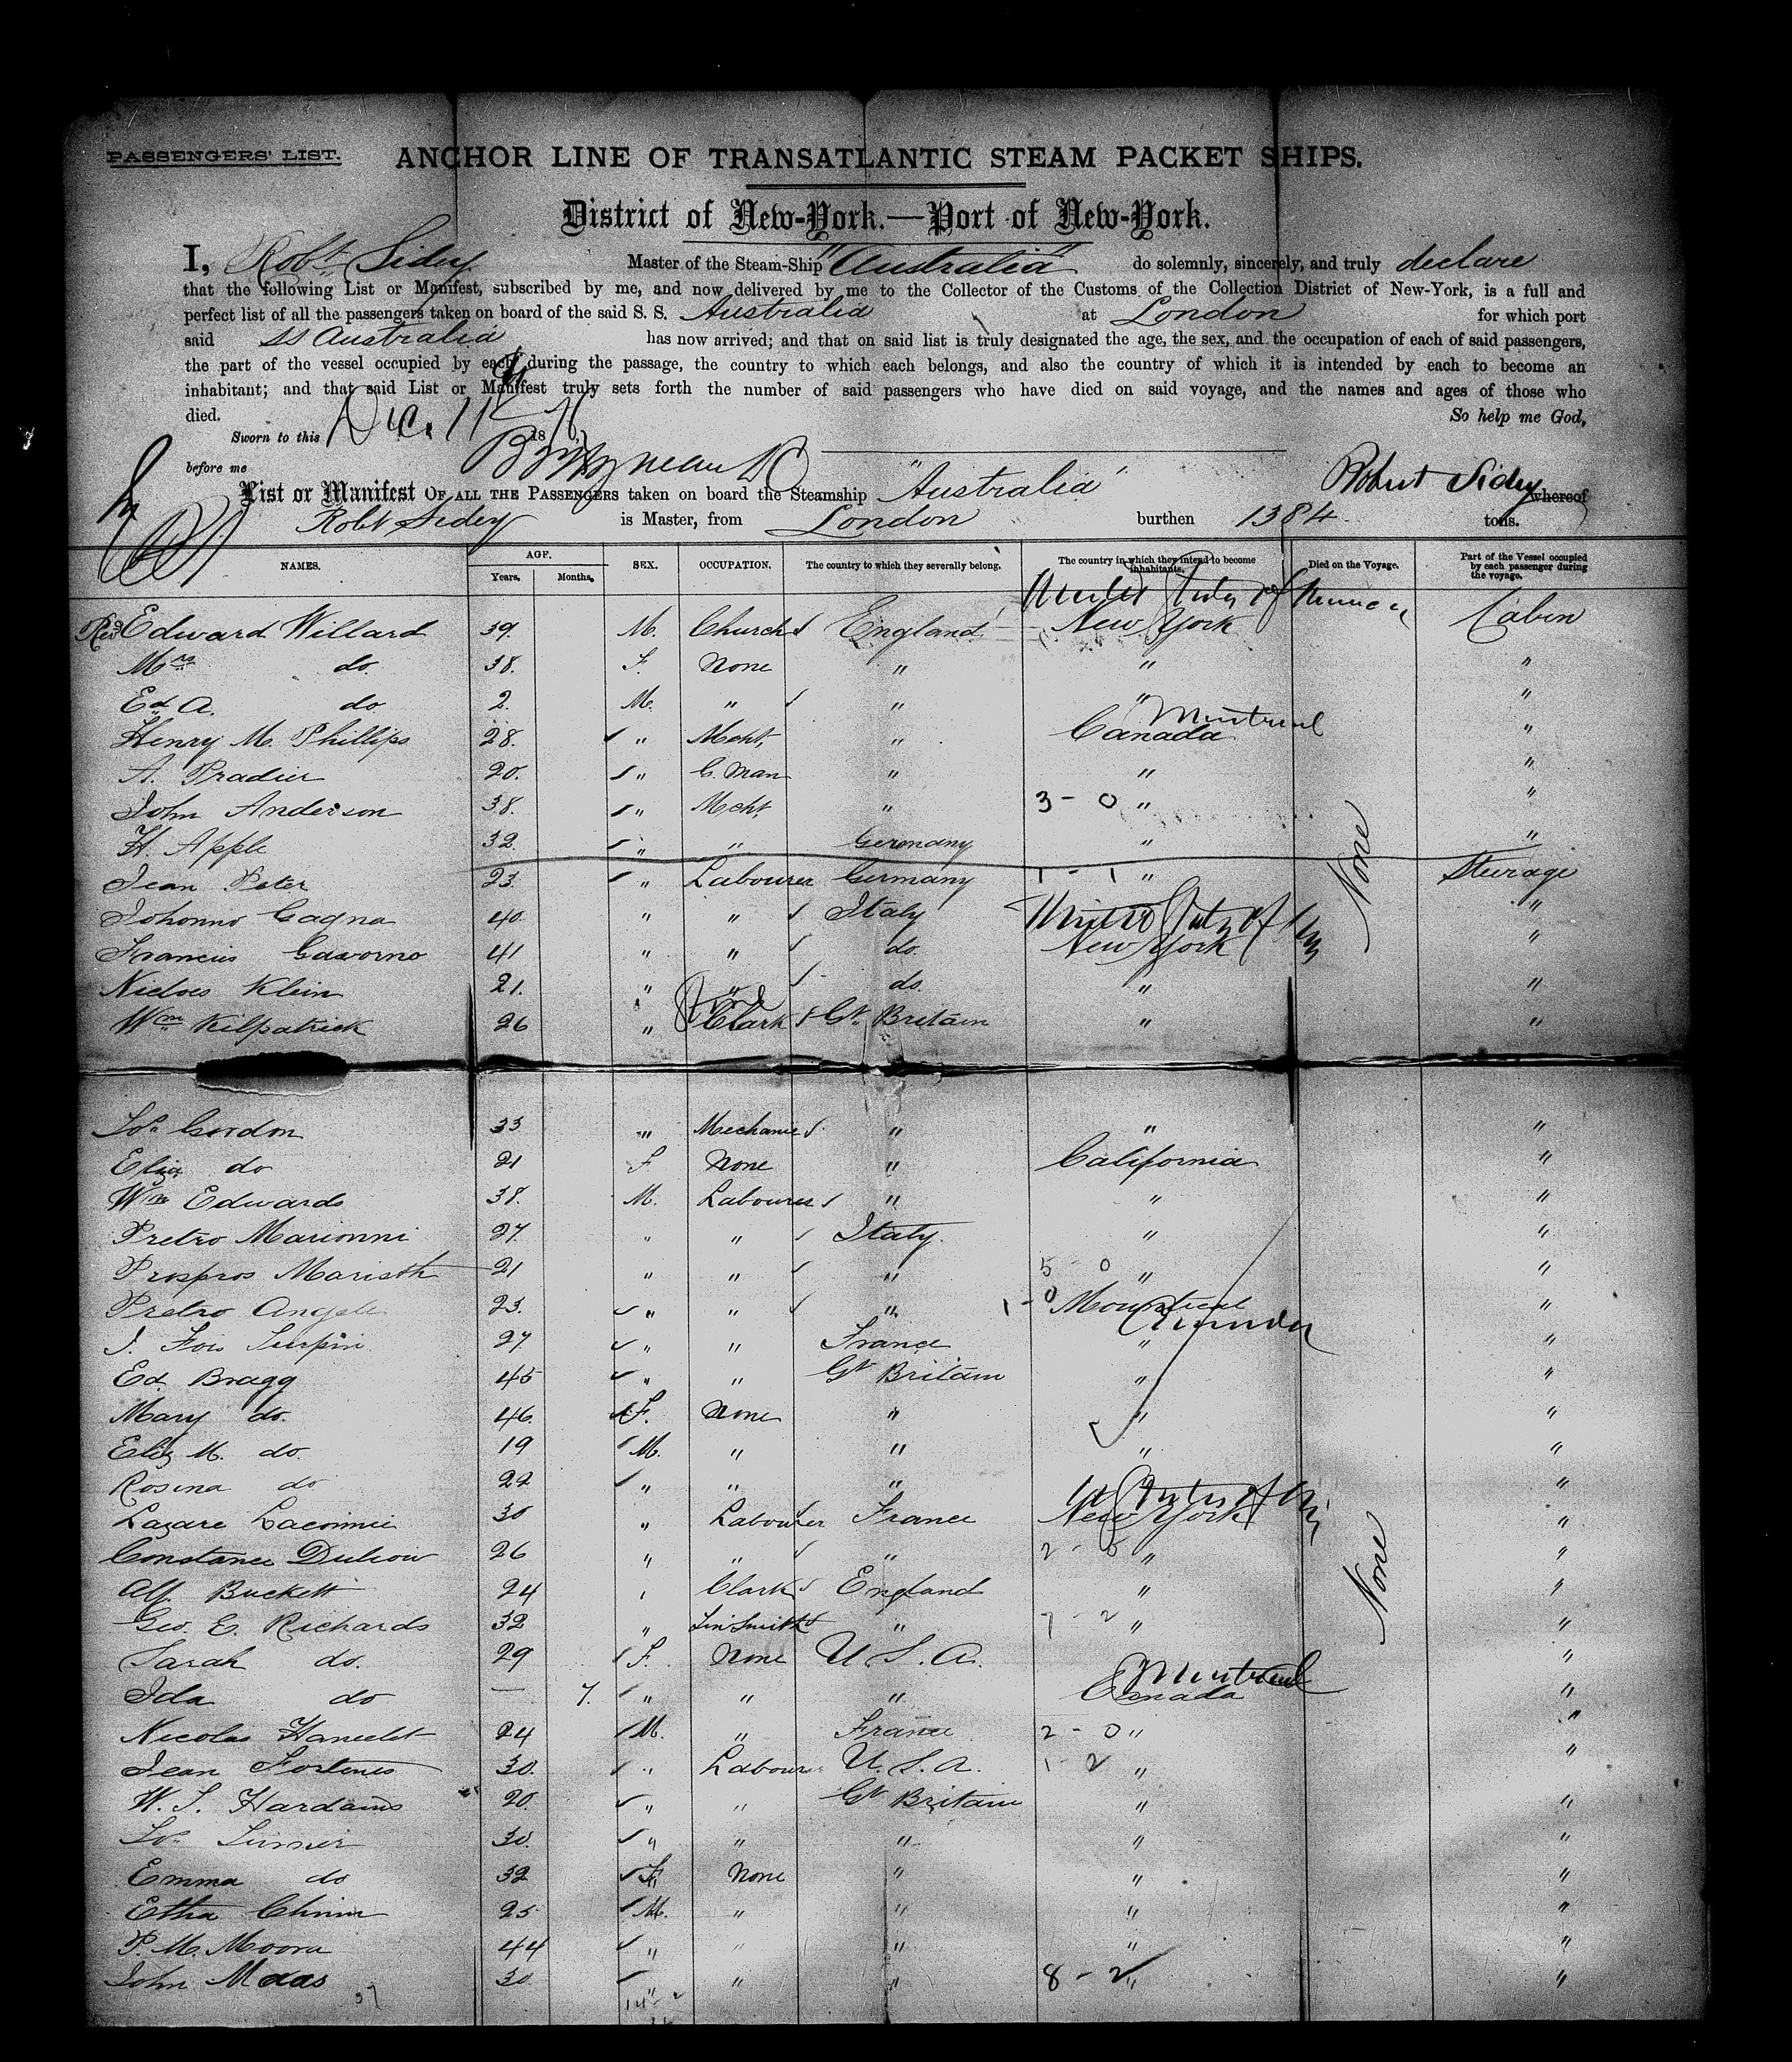 PASSENGERS' LIST.
ANCHOR LINE OF TRANSATLANTIC STEAM PACKET SHIPS.
District of New-York.—Port of New-York.
I, Robt Sidey Master of the Steam-Ship "Australia" do solemnly, sincerely, and truly declare
that the following List or Manifest, subscribed by me, and now delivered by me to the Collector of the Customs of the Collection District of New-York, is a full and
perfect list of all the passengers taken on board of the said S. S. Australia at London for which port
said SS Australia has now arrived; and that on said list is truly designated the age, the sex, and the occupation of each of said passengers,
the part of the vessel occupied by each during the passage, the country to which each belongs, and also the country of which it is intended by each to become an
inhabitant; and that said List or Manifest truly sets forth the number of said passengers who have died on said voyage, and the names and ages of those who
died. So help me God,
Sworn to this Dec. 11 18
before me
Robert Sidey
List or Manifest OF ALL THE PASSENGERS taken on board the Steamship "Australia" whereof
Robt Sidey is Master, from London burthen 1384 tons.
NAMES. AGE. Years. Months. SEX. OCCUPATION. The country to which they severally belong. The country in which they intend to become inhabitants. Died on the Voyage. Part of the Vessel occupied by each passenger during the voyage.
United States of America
Revd Edward Willard 39. M. Church England New York Cabin
Mrs do. 38. F. None " " "
Ed. A. do 2. M. " " " "
Montreal
Henry M. Phillips 28. " Mcht, " Canada "
A. Pradier 20. " C. Man " " "
John Anderson 38. " Mcht, " 3 - 0 " "
H. Apple 32. " " Germany " "
Jean Peter 23. " Labourer Germany 1 - 1 " Steerage
Johonno Cagna 40. " " Italy United States of "
Francius Gavorno 41 " " do. New York "
Nicloes Klein 21. " " do. " "
Wm Kilpatrick 26 " Clark Gt Britain " "
None
Jos. Gordon 33 " Mechanic " " "
Eliza do 21 F None " California "
Wm Edwards 38. M. Labourer " " "
Pretro Marionni 27. " " Italy. " "
Prospros Maristh 21 " " " 5 - 0 " "
Pretro Angele 23. " " " 1 - 0 Mountreal "
Canada
J. Fois Turpin 27 " " France " "
Ed. Bragg 45 " " Gt Britain " "
Mary do. 46. F. None " " "
Eliz M. do. 19 M. " " " "
Rosina do 22 " " " "
Lazare 30 " Labourer France New York "
Constance 26 " " " " "
Alf. Buckett 24 " Clark England " "
Geo. E. Richards 32 " Tin Smith " 7 - 2 " "
Sarah do. 29 F. None U. S. A. "
Montreal
Ida do — 7. " " " Canada "
Nicolas Hamelet 24 M. " France 2 - 0 " "
Jean Fortenes 30. " Labour U. S. A. 1 - 2 " "
W. S. Hardams 20. " " Gt Britain " "
Jos. Turner 30. " " " " "
Emma do 32 F. None " " "
Etha 25 M. " " " "
P. M. Moora 44 " " " " "
John Maas 30 " " " 8 - 2 " "
None
37